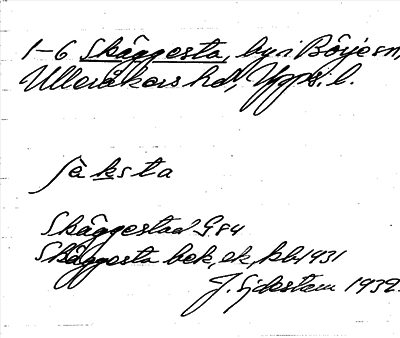 1-6 Skäggesta, by i Börje sn,
Ulleråkers hd, Upps. l.
ʃä̀ksta
Skäggesta G84
Skäggesta bek, ek, kb 1931
J. Sjdestem 1932.